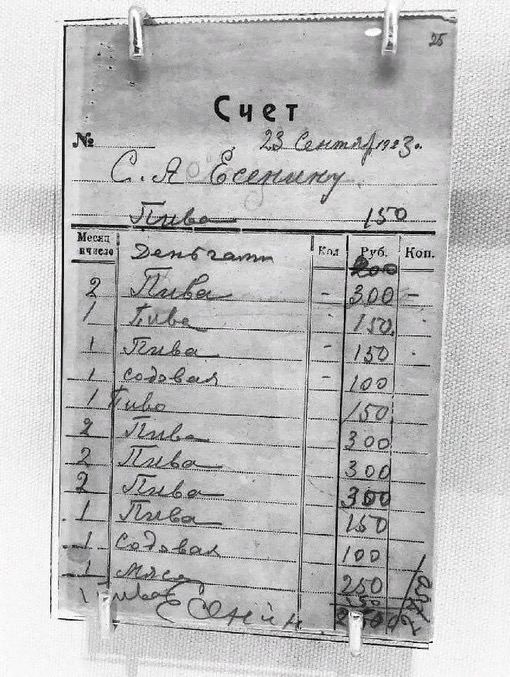 25
Счет
№ 23 Сентяр 1923 г.
С. А Есенину
Пива 150
Месяц и число Деньгами Кол Руб. Коп.
200
2 Пива - 300 -
1 Пива 150
1 Пива - 150
1 содовая - 100
1 Пиво 150
2 Пива 300
2 Пива 300
2 Пива 300
1 Пива 150
1 содовая 100
1 мясо 250
1 Пиво 150
Есенин